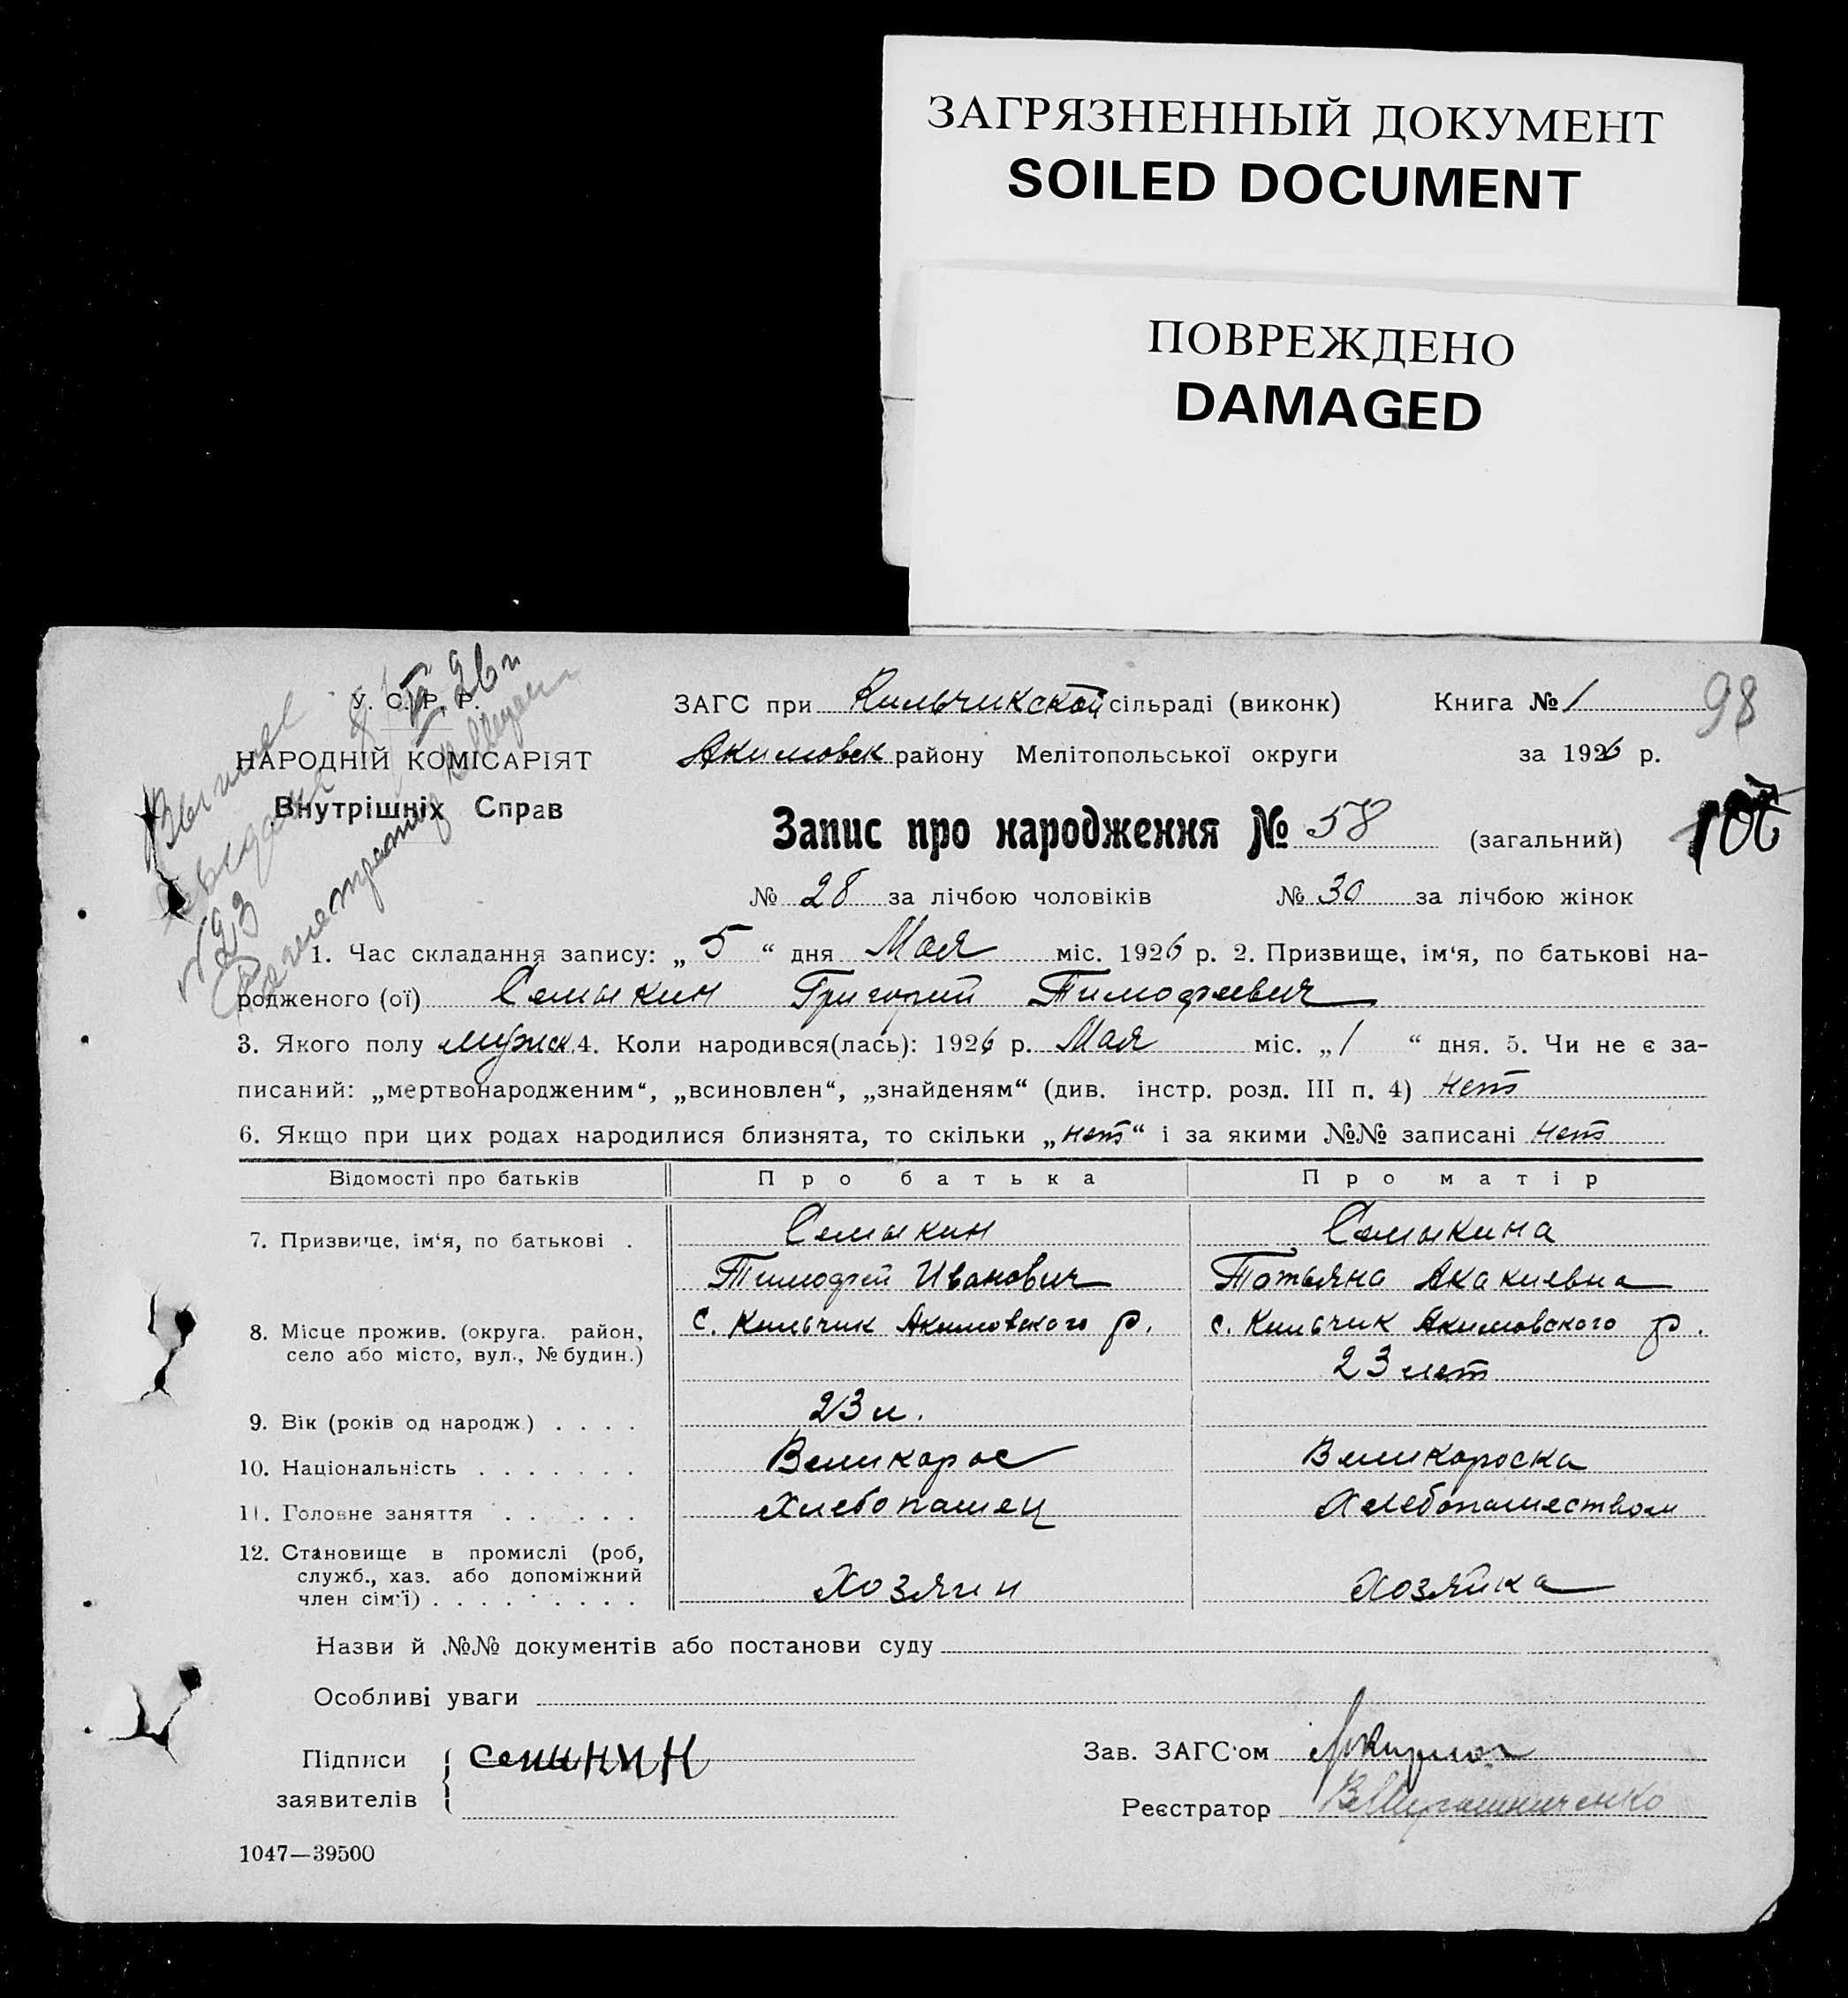 ЗАГРЯЗНЕННЫЙ ДОКУМЕНТ
SOILED DOCUMENT
ПОВРЕЖДЕНО
DAMAGED
У. С. Р. Р.
НАРОДНІЙ КОМІСАРІЯТ
Внутрішніх Справ
98
ЗАГС при Кильчикской сільраді (виконк) Книга № 1
Акимовск району Мелітопольської округи за 1926 р.
Запис про народження № 58 (загальний)
№ 28 за лічбою чоловіків № 30 за лічбою жінок
1. Час складання запису: „ 5 “ дня Мая міс. 1926 р. 2. Призвище, ім‘я, по батькові на-
родженого (ої) Семыкин Григорий Тимофеевич
3. Якого полу мужск 4. Коли народився(лась): 1926 р. Мая міс. „ 1 “ дня. 5. Чи не є за-
писаний: „мертвонародженим“, „всиновлен“, „знайденям“ (див. інстр. розд. III п. 4) нет
6. Якщо при цих родах народилися близнята, то скільки „нет“ і за якими №№ записані нет
Відомості про батьків Про батька Про матір
7. Призвище, ім‘я, по батькові . Семыкин Семыкина
Тимофей Иванович Татьяна Акакиевна
8. Місце прожив. (округа. район, с. Кильчик Акимовского р. с. Кильчик Акимовского р.
село або місто, вул., № будин.) 23 лет
9. Вік (років од народж.) . . . . 23 л.
10. Національність . . . . . . . Великорос Великороска
11. Головне заняття . . . . . . Хлебопашец Хлебопашеством
12. Становище в промислі (роб,
служб., хаз. або допоміжний
член сім‘ї) . . . . . . . . . Хозяин Хозяйка
Назви й №№ документів або постанови суду
Особливі уваги
Підписи Семыкин Зав. ЗАГС‘ом
заявителів Реєстратор
1047—39500